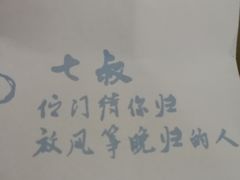 七叔
位门待你归
放风筝晚归的人